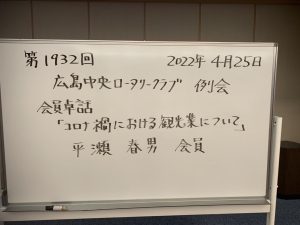 第1932回 2022年4月25日
広島中央ロータリークラブ 例会
会員卓話
「コロナ禍における観光業について」
平瀬 春男 会員